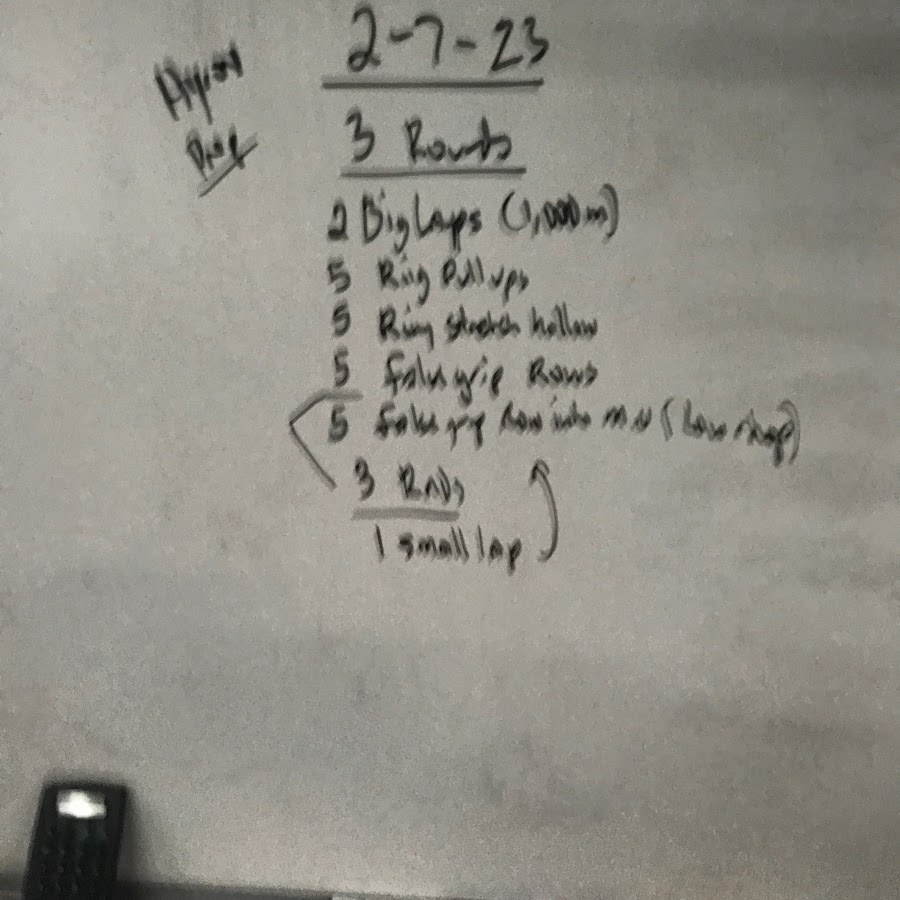 2-7-23
3 Rounds
2 Big Laps (1,000m)
5 Ring Pull ups
5 Ring stretch hollow
5 grip Rows
5 grip Row into mu (Low rings)
3 Rnds
1 small lap